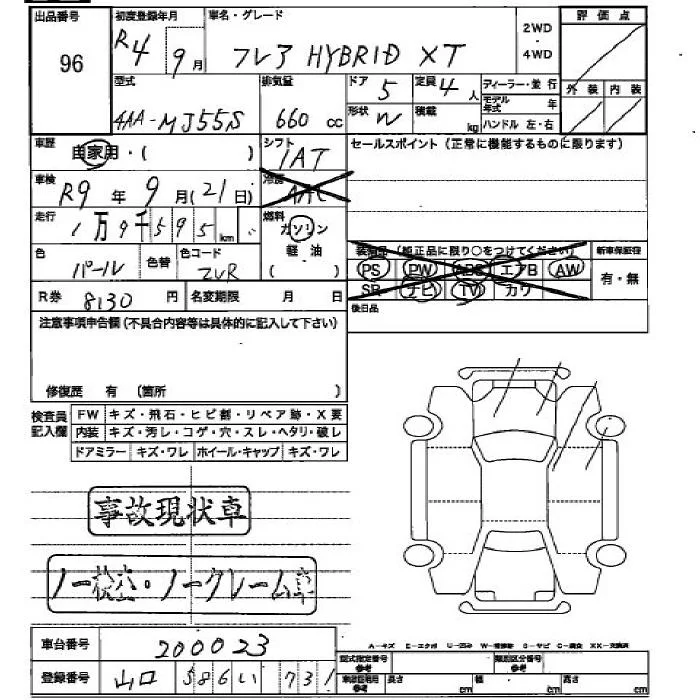 出品番号
96
初度登録年月
R4 9月
車名・グレード
フレア HYBRID XT
2WD
・
4WD
評価点
外装 内装
型式
4AA-MJ55S
排気量
660 cc
ドア 5
形状 W
定員 4人
積載 kg
ディーラー・並行
モデル年式 年
ハンドル 左・右
車歴
自家用・( )
シフト
IAT
冷房
AAC
セールスポイント(正常に機能するものに限ります)
車検
R9年 9月(21日)
走行
1万9千595km
燃料
ガソリン
軽油
( )
色
パール
色替
色コード
ZVR
装備品(純正品に限り○をつけてください)
PS PW ABS エアB AW
SR ナビ TV カワ
新車保証書
有・無
後日品
R券 8130円
名変期限 月 日
注意事項申告欄(不具合内容等は具体的に記入して下さい)
修復歴 有 (箇所 )
検査員記入欄
FW キズ・飛石・ヒビ割・リペア跡・X要
内装 キズ・汚レ・コゲ・穴・スレ・ヘタリ・破レ
ドアミラー キズ・ワレ ホイール・キャップ キズ・ワレ
事故現状車
ノー検査・ノークレーム車
車台番号 200023
登録番号 山口 586 い 731
A-キズ E-エクボ U-凹み W-補修跡 S-サビ C-腐食 XX-交換済
型式指定番号 参考
類別区分番号 参考
車検証記載 参考 長さ cm 幅 cm 高さ cm